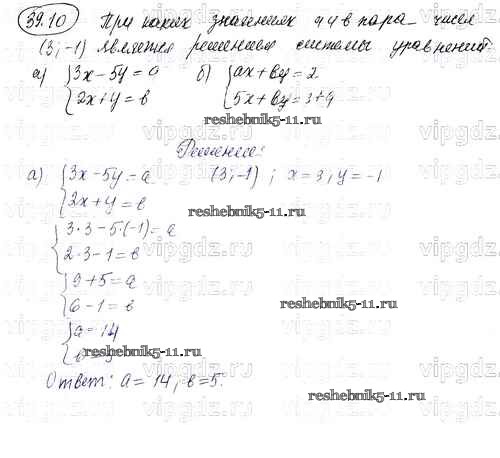 39.10 При каких значениях а и в пара чисел
(3; -1) является решением системы уравнений:
а) { 3x - 5y = a б) { ax + by = 2
{ 2x + y = в { 5x + by = 3 + 9
reshebnik5-11.ru
Решение:
а) { 3x - 5y = a (3; -1) ; x = 3; y = -1
{ 2x + y = в
reshebnik5-11.ru
{ 3·3 - 5·(-1) = a
{ 2·3 - 1 = в
{ 9 + 5 = a
{ 6 - 1 = в
reshebnik5-11.ru
{ a = 14
reshebnik5-11.ru
Ответ: a = 14, в = 5.
reshebnik5-11.ru
vipgdz.ru